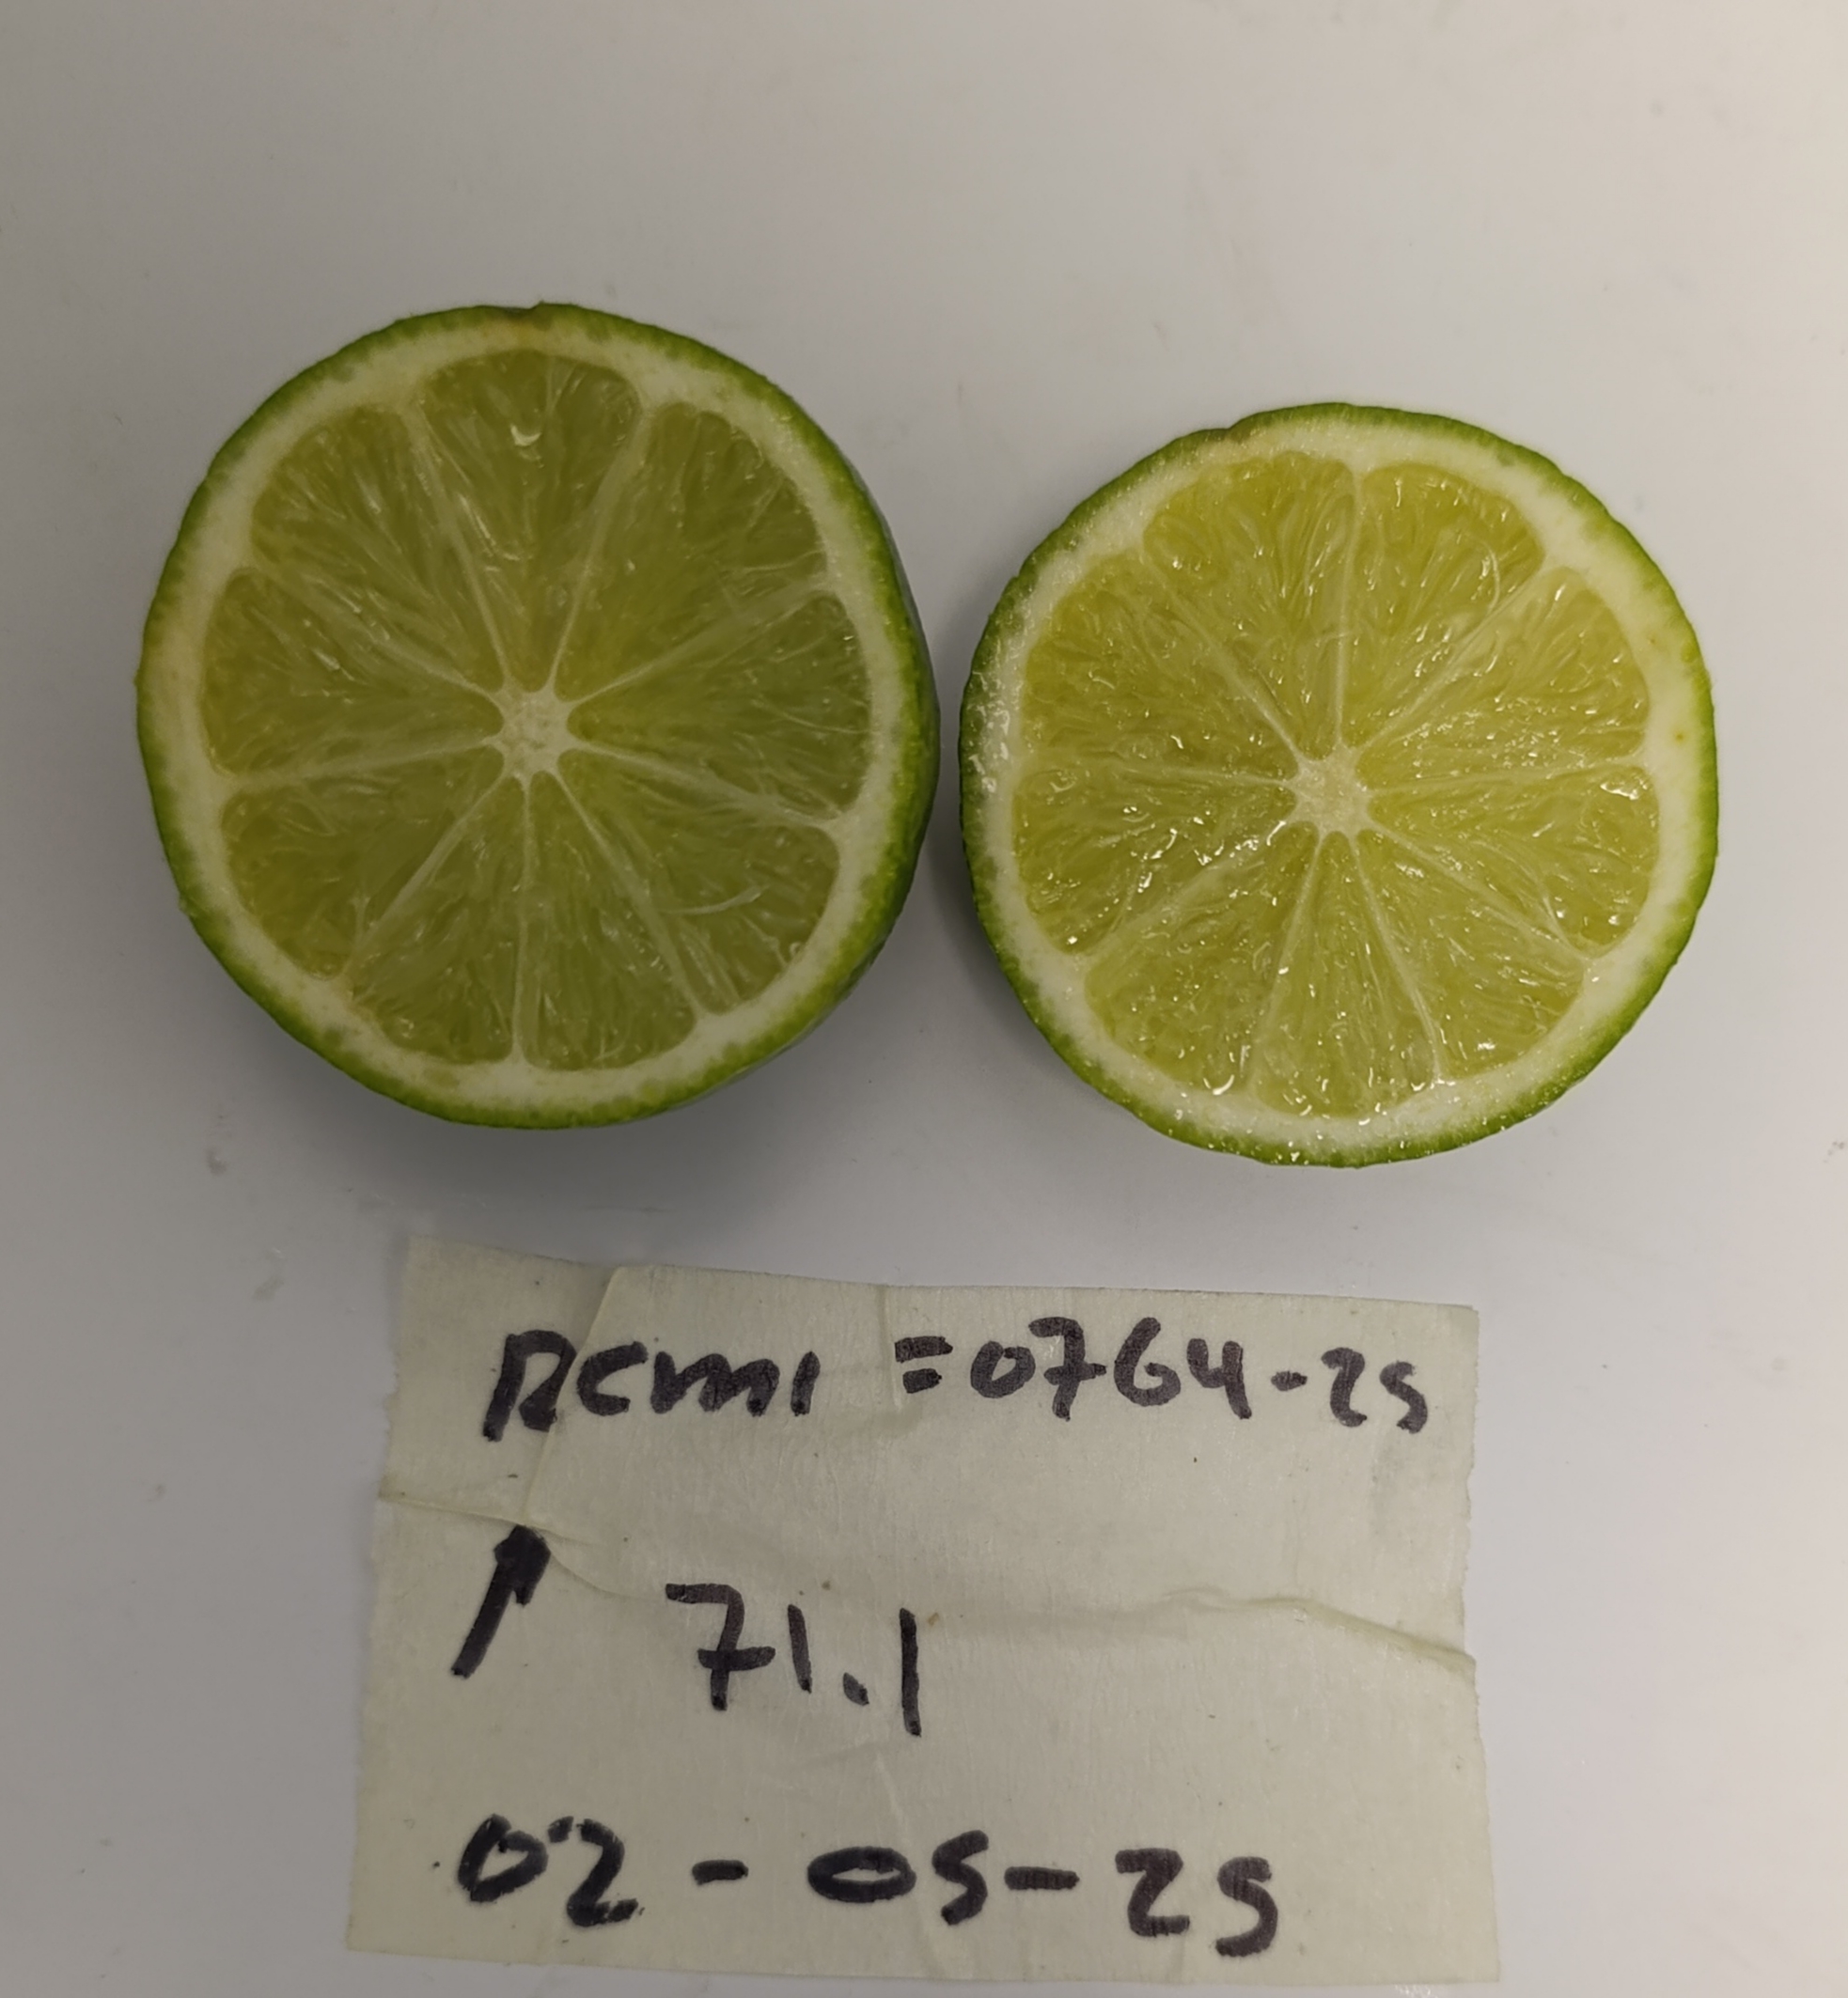 Remi = 0764-25
71.1
02-05-25